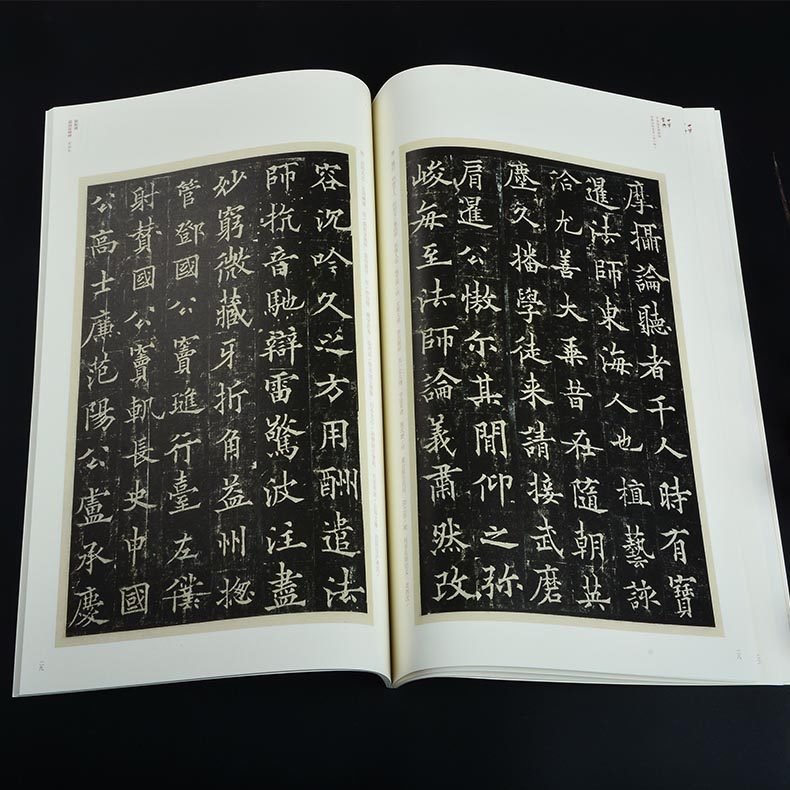 摩攝論聽者千人時有寶
暹法師東海人也植藝詠
洽尤善大乗昔在隨朝英
塵久播學徒来請接武磨
肩暹公傲尒其間仰之弥
峻每至法師論義肅然改
二八
容沉吟久之方用酬遣法
師抗音馳辯雷驚波注盡
妙窮微藏牙折角益州揔
管鄧國公竇璡行臺左僕
射賛國公竇軌長史申國
公高士廉范陽公盧承慶
二九